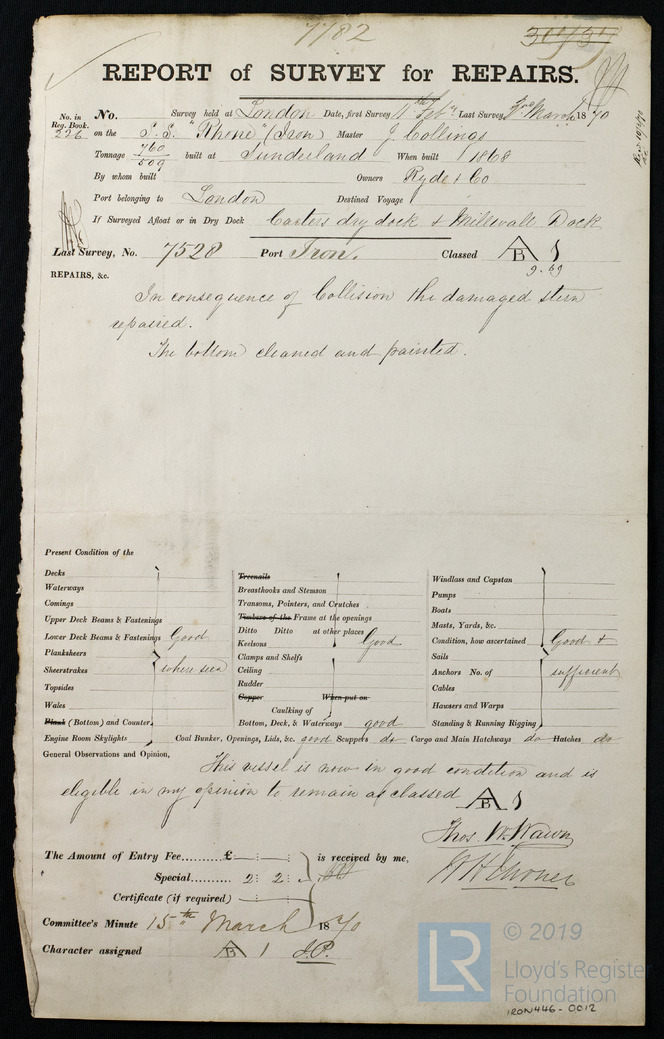 7782
REPORT of SURVEY for REPAIRS.
No. in Reg. Book. 226
No. Survey held at London Date, first Survey 11th Feby Last Survey March 1870
on the S.S. "Rhone" (Iron) Master J. Collings
Tonnage 760 509 built at Sunderland When built 1868
By whom built Owners Ryde & Co
Port belonging to London Destined Voyage
If Surveyed Afloat or in Dry Dock Carters dry dock & Millwall Dock
Last Survey, No. 7528 Port Iron. Classed A B 1
9.69
REPAIRS, &c.
In consequence of Collision the damaged stem
repaired.
The bottom cleaned and painted.
Present Condition of the
Decks
Waterways
Comings
Upper Deck Beams & Fastenings
Lower Deck Beams & Fastenings Good
Planksheers
Sheerstrakes where seen
Topsides
Wales
Plank (Bottom) and Counter
Treenails
Breasthooks and Stemson
Transoms, Pointers, and Crutches
Timbers of the Frame at the openings
Ditto Ditto at other places
Keelsons Good
Clamps and Shelfs
Ceiling
Rudder
Copper When put on
Caulking of
Bottom, Deck, & Waterways good
Windlass and Capstan
Pumps
Boats
Masts, Yards, &c.
Condition, how ascertained Good &
Sails
Anchors No. of sufficient
Cables
Hausers and Warps
Standing & Running Rigging
Engine Room Skylights Coal Bunker, Openings, Lids, &c. good Scuppers do Cargo and Main Hatchways do Hatches do
General Observations and Opinion,
This vessel is now in good condition and is
eligible in my opinion to remain as classed A B 1
Thos. W. Wawn
The Amount of Entry Fee £ : : is received by me,
Special 2 : 2 :
Certificate (if required)
Committee's Minute 15th March 1870
Character assigned A B 1 J.P.
LR © 2019
Lloyd's Register
Foundation
IRON446-0012